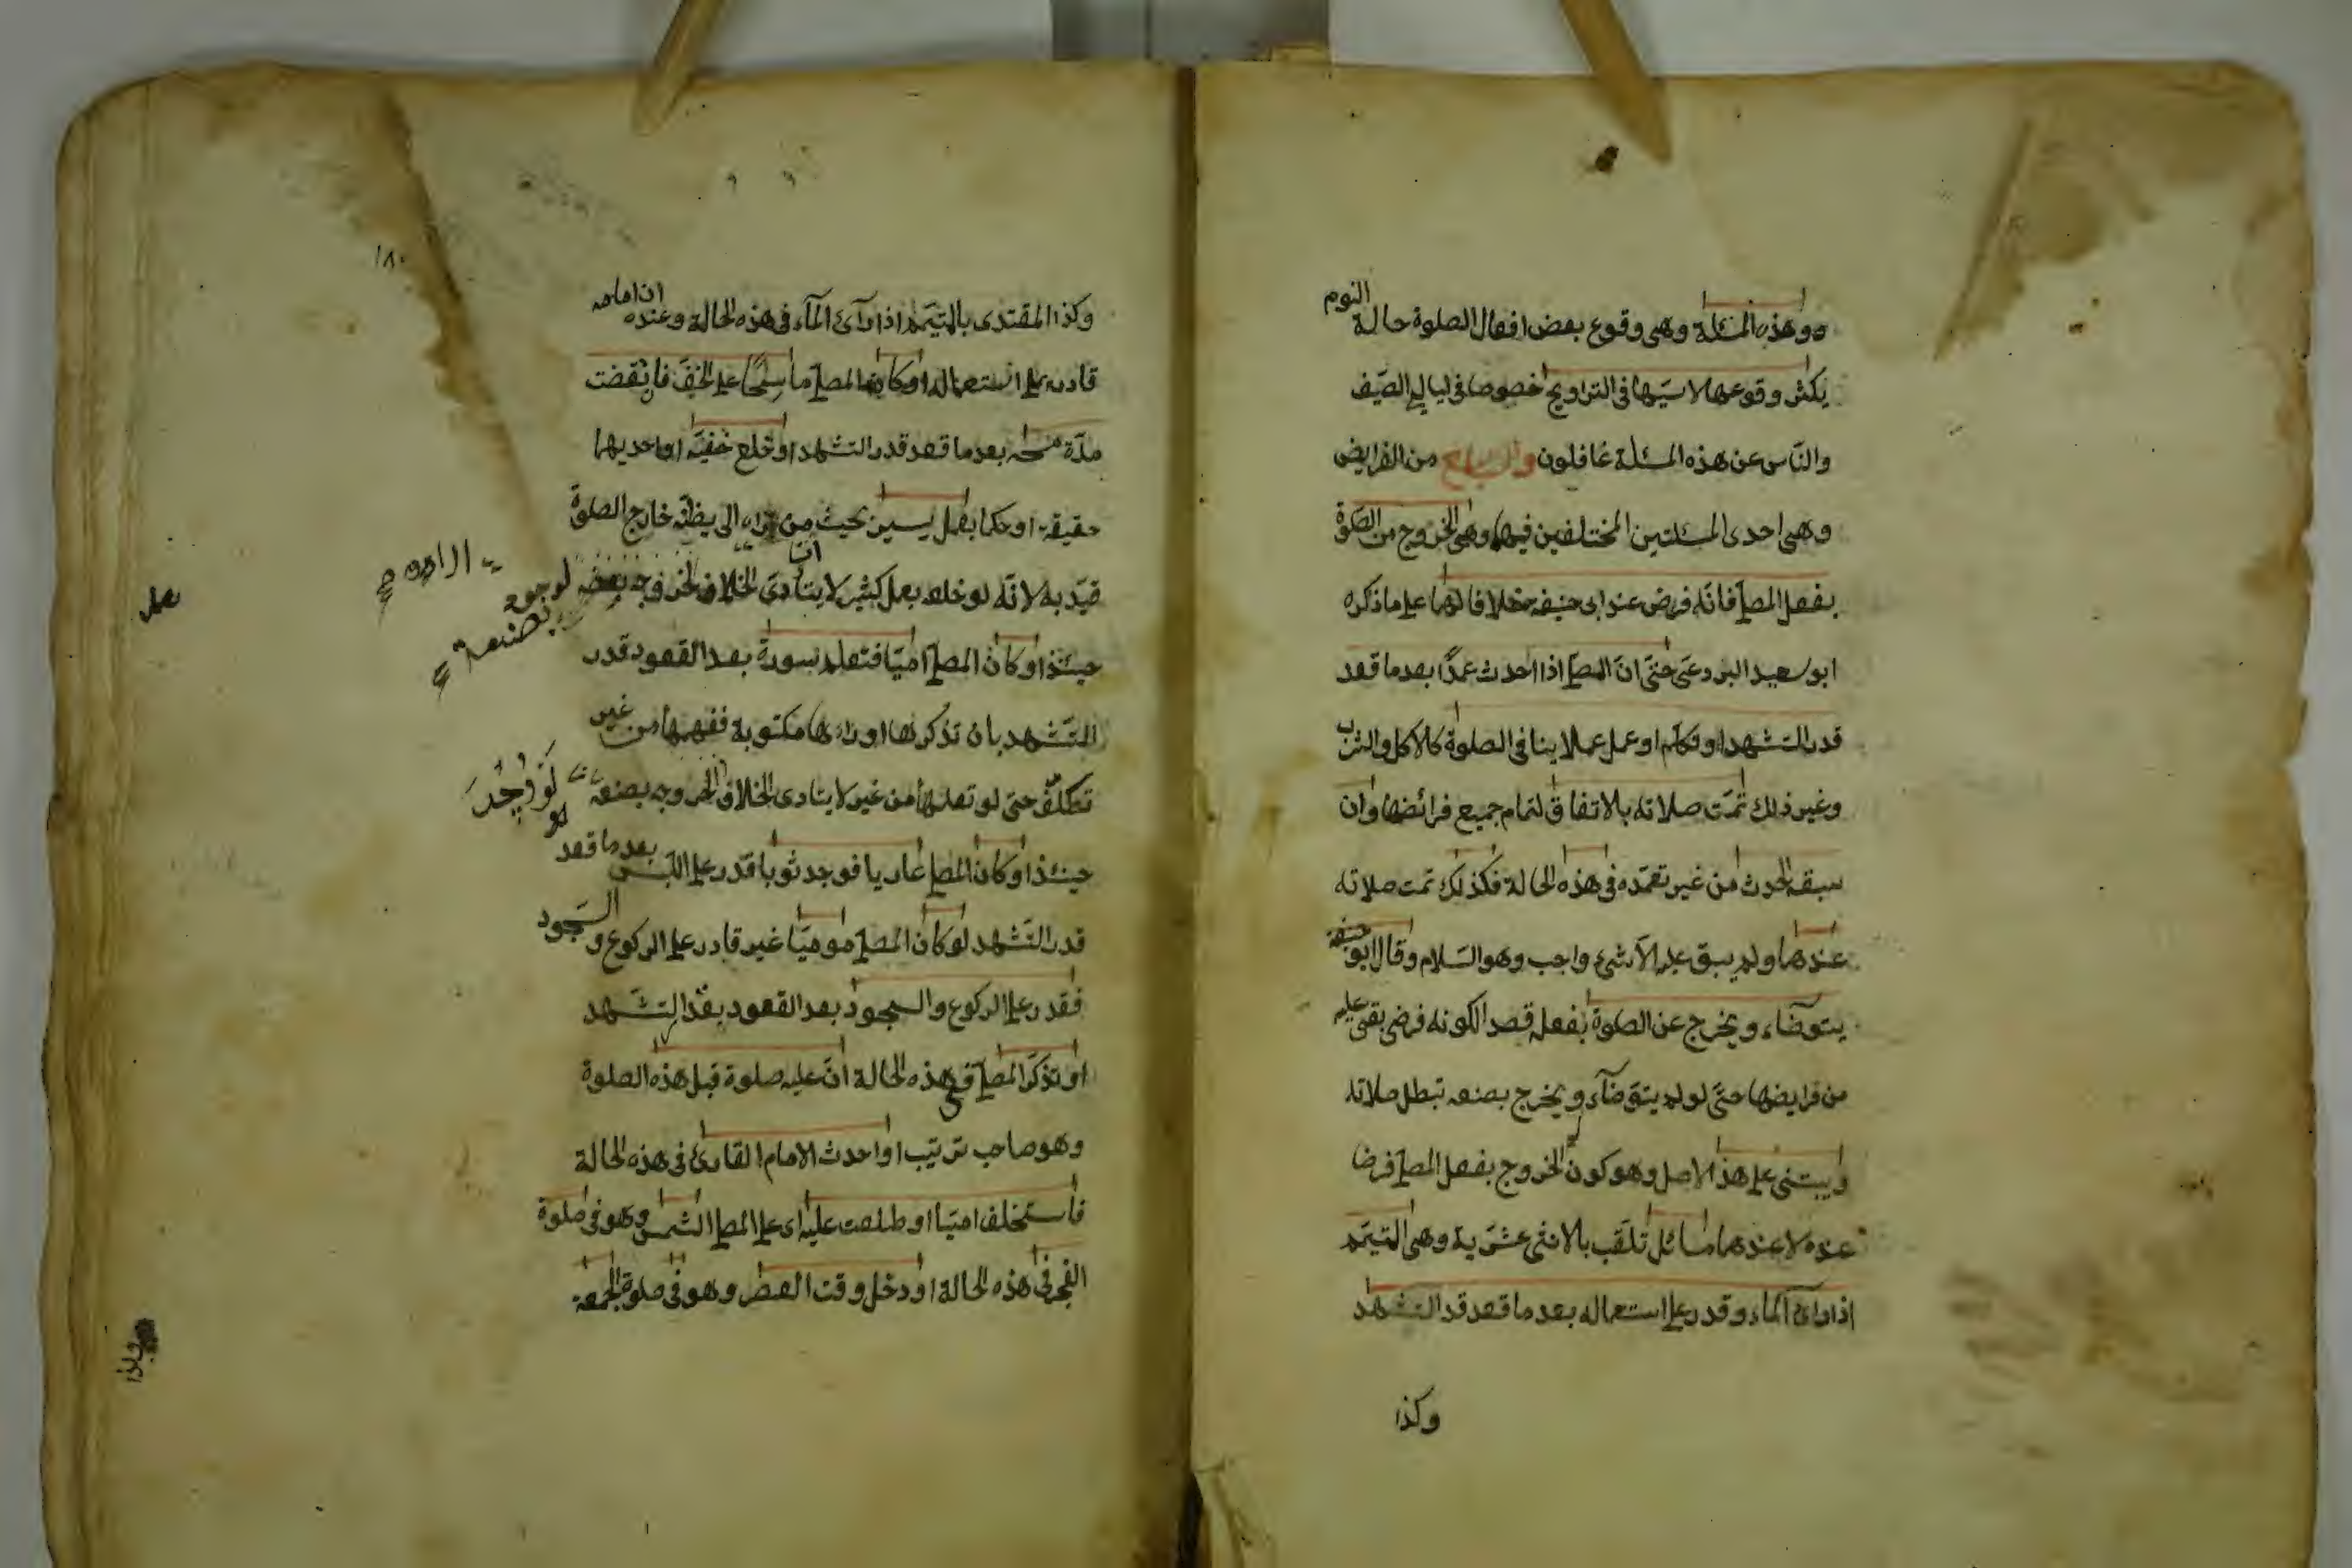 وهذه المسئلة وهى وقوع بعض افعال الصلوة حالة النوم
يكثر وقوعها لا سيّما فى التراويح خصوصا فى ليالى الصّيف
والنّاس عن هذه المسئلة غافلون والسابع من الفرايض
وهى احدى المسئلتين المختلفين فيهما وهى الخروج من الصلوة
بفعل المصلى فانّه فرض عند ابى حنيفه خلافا لهما على ما ذكره
ابو سعيد البردعى حتّى انّ المصلى اذا احدث عمدًا بعد ما قعد
قدر التشهد او تكلّم او عمل عملا ينافى الصلوة كالاكل والشرب
وغير ذلك تمّت صلاته بالاتفاق لتمام جميع فرائضها وان
سبقه الحدث من غير تعمّده فى هذه الحالة فكذلك تمت صلاته
عندهما ولم يبق عليه الّا شىء واجب وهو السّلام وقال ابو حنيفه
يتوضّاء ويخرج عن الصلوة بفعله قصدا لكونه فرض بقى عليه
من فرايضها حتّى لو لم يتوضّآء ويخرج بصنعه تبطل صلاته
ويبتنى على هذا الاصل وهو كون الخروج بفعل المصلى فرضا
عنده لا عندهما مسائل تلقّب بالاثنى عشريّة وهى المتيمّم
اذا رائ المآء وقدر على استعماله بعد ما قعد قدر التشهد
وكذا
١٨٠
وكذا المقتدى بالمتيمّم اذا رآئ المآء فى هذه الحالة وعنده ان امامه
قادر على استعماله او كان المصلى ماسحًا على الخفّ فانقضت
مدّة مسحه بعد ما قعد قدر التشهد او خلع خفيّه او احديهما
حقيقة او حكما بعمل يسير بحيث من رآه الى يظنّه خارج الصلوة
قيّد به لانّه لو خلعه بعمل كثير لا يتأدى الخلاف لخروجه لوجوه
بصنعه
حينئذ او كان المصلى اميّا فتعلم سورة بعد القعود قدر
التّشهد بان تذكرها او راءها مكتوبة ففهمها من غير
تكلّف حتى لو تعلمها من غير لا يتادى الخلاف الخروجه بصنعه
لو وُجدَ
حينئذ او كان المصلى عاريا فوجد ثوبا قدر على اللبس بعد ما قعد
قدر التّشهد او كان المصلى موميًا غير قادر على الركوع والسّجود
فقدر على الركوع والسجود بعد القعود بقدر التشهد
او تذكّر المصلى فى هذه الحالة انّ عليه صلوة قبل هذه الصلوة
وهو صاحب ترتيب او احدث الامام القارئ فى هذه الحالة
فاستخلف اميّا او طلعت عليه اى على المصلى الشمس وهو فى صلوة
الفجر فى هذه الحالة او دخل وقت العصر وهو فى صلوة الجمعه